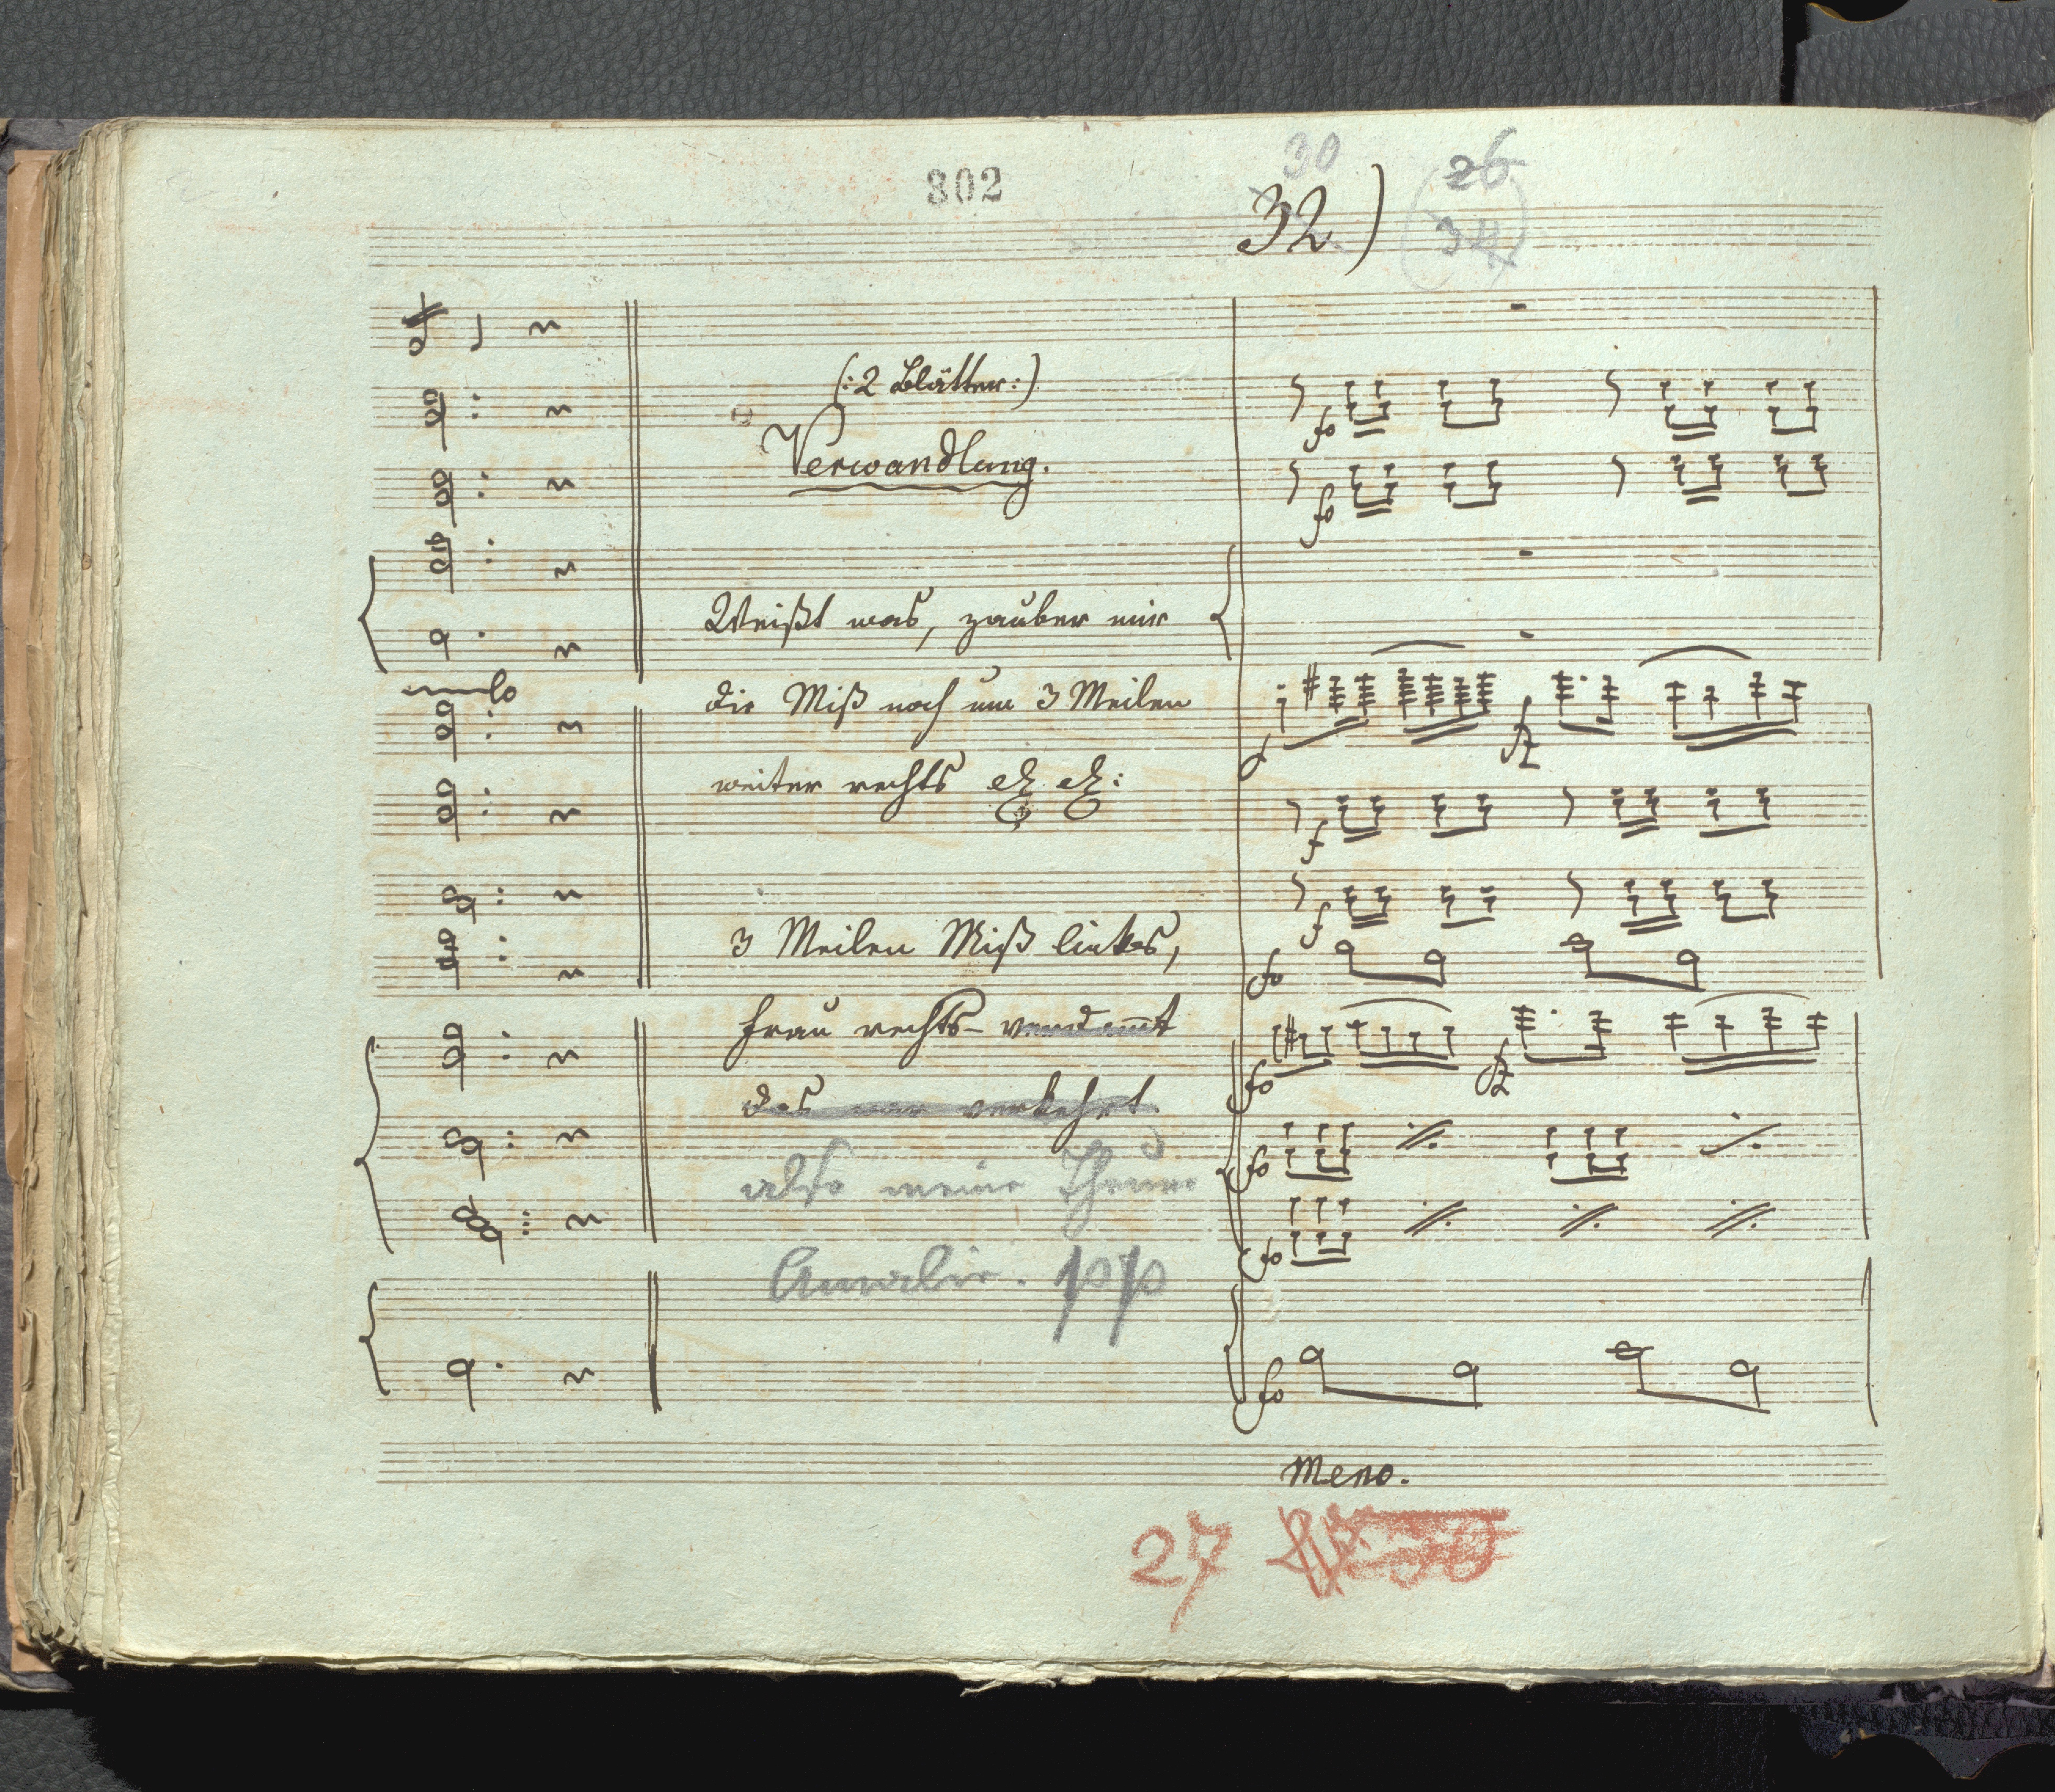 302
30
32)
26
34
(:2 Blätter:)
Verwandlung.
Weißt was, zauber mir
die Miß noch um 3 Meilen
weiter rechts etz etz:
3 Meilen Miß links,
Frau rechts – verdammt
das war verkehrt
also meine Theure
Amalie. pp
lo
fo
fo
p
fz
f
f
fo
fo
fz
fo
fo
fo
Meno.
27